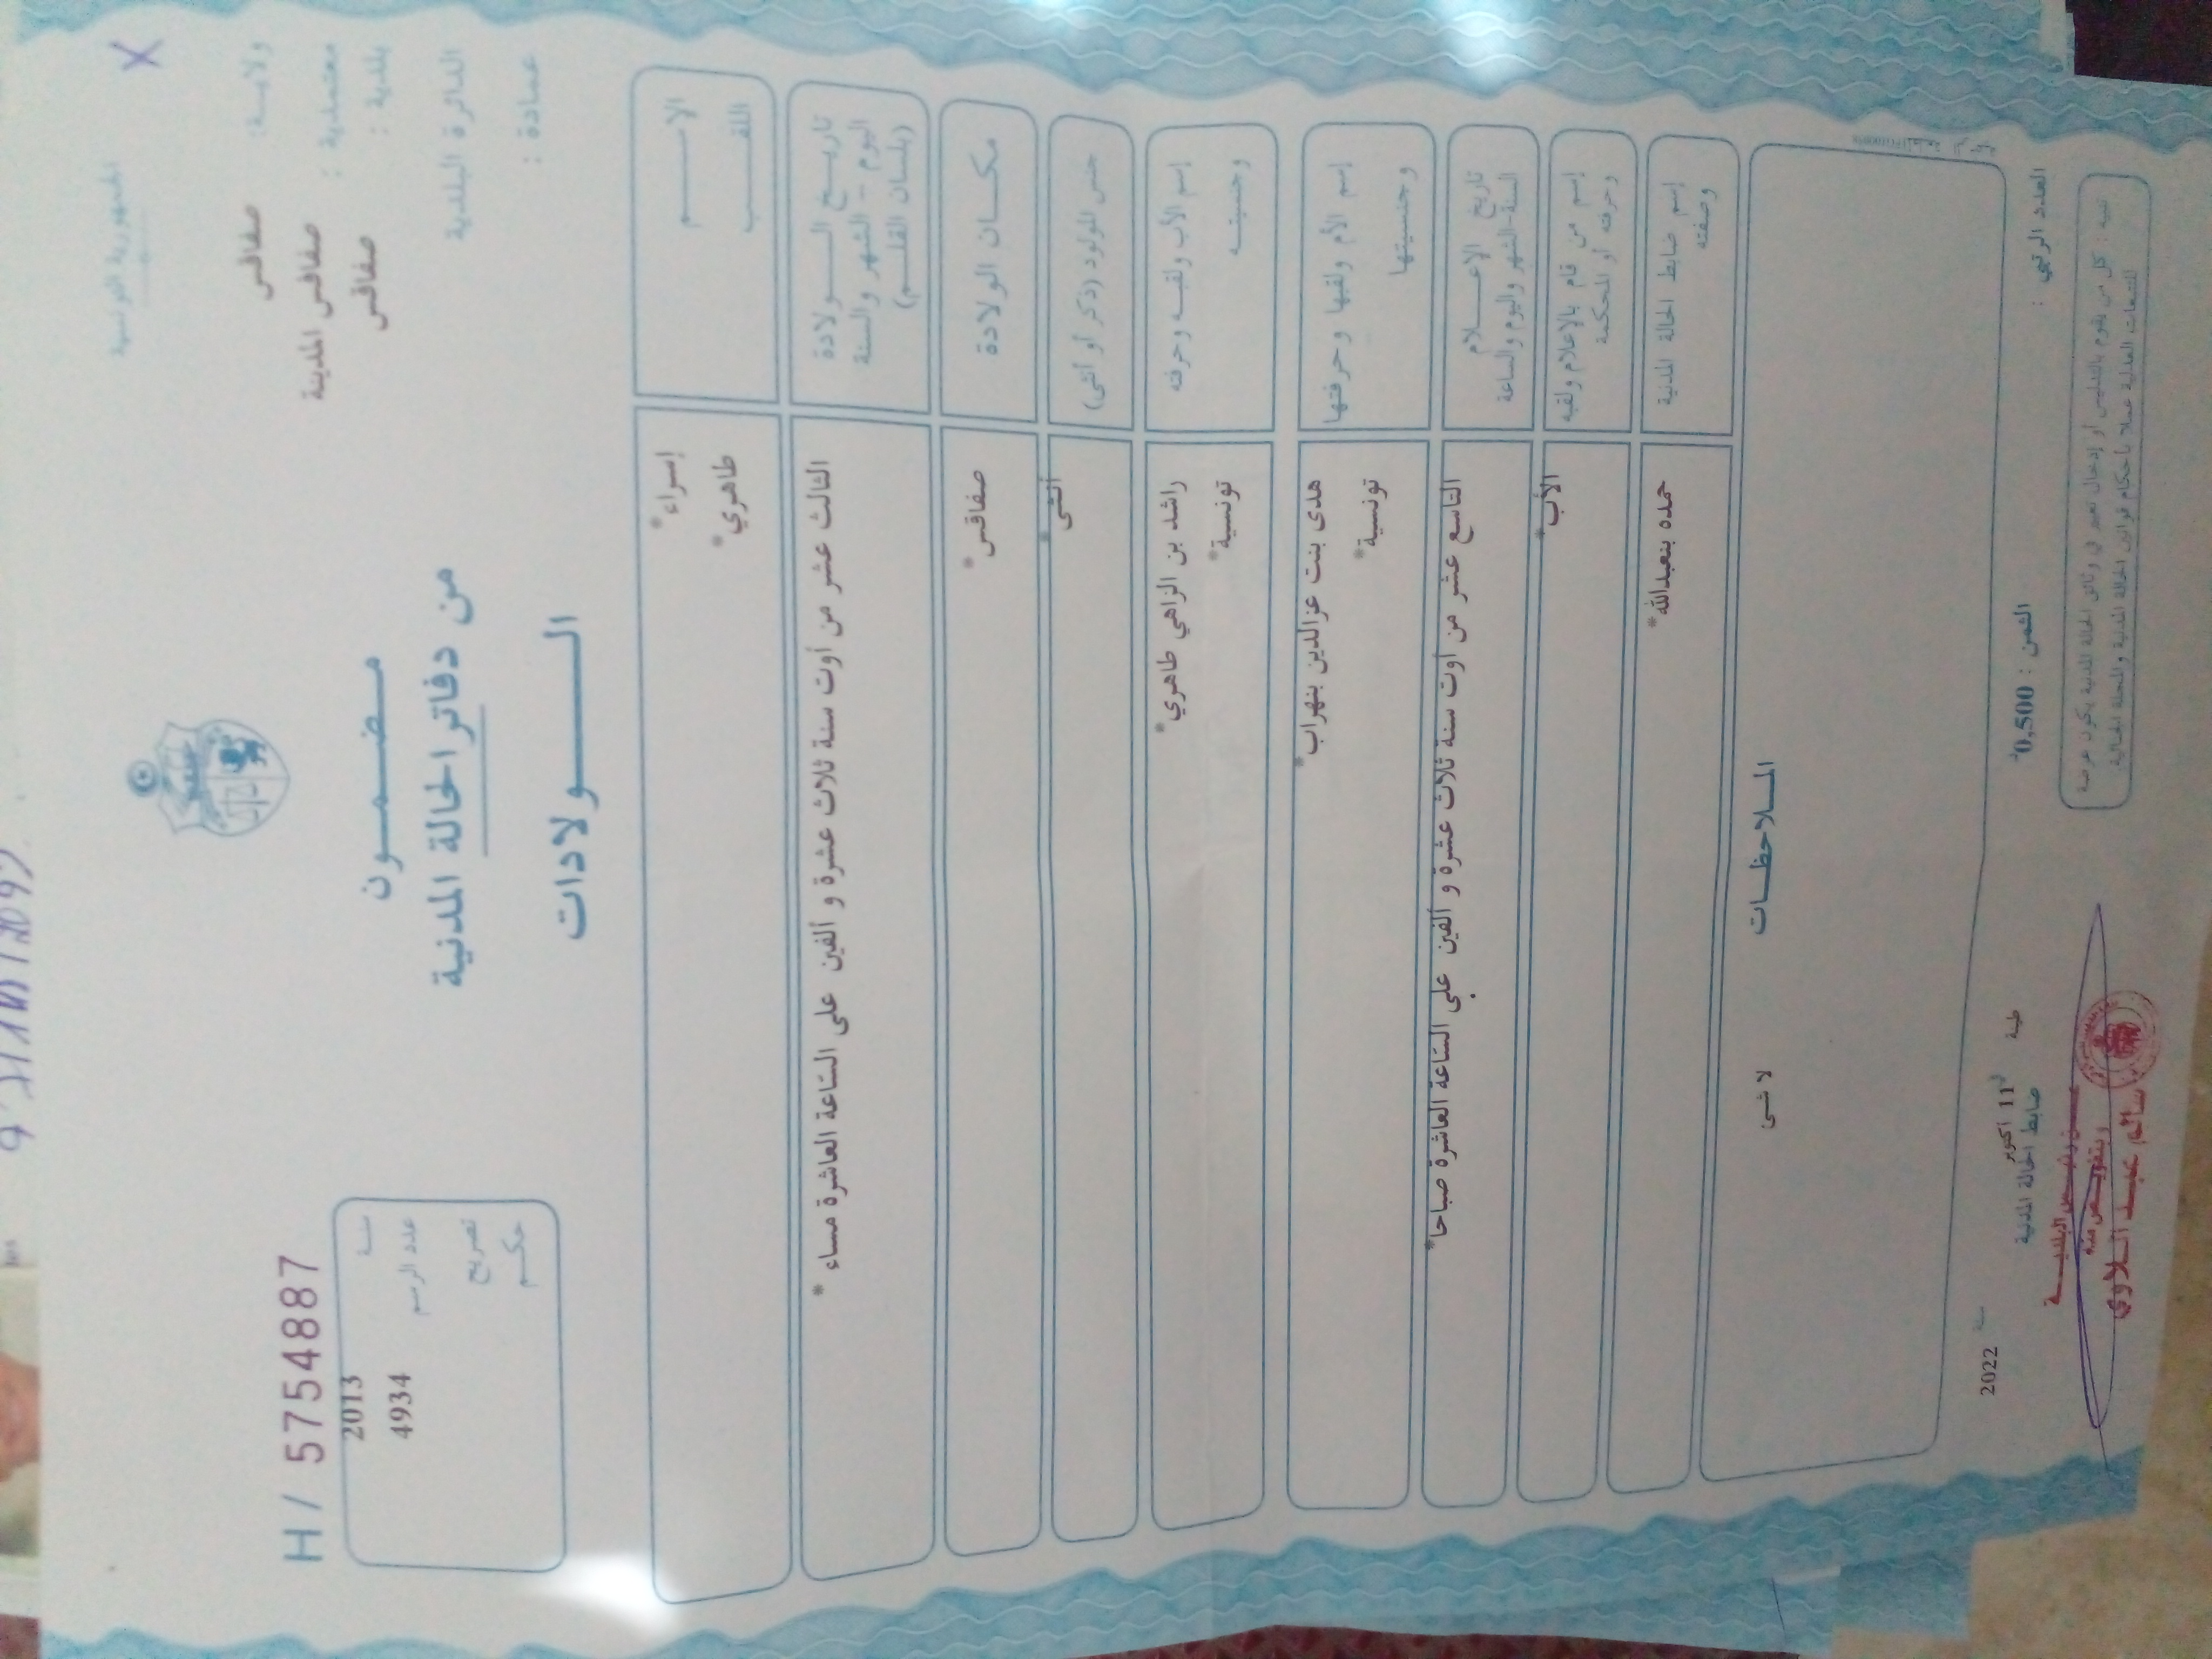 الجمهورية التونسية
ولايـــة: صفاقس
معتمدية : صفاقس المدينة
بلدية : صفاقس
الدائرة البلدية
عمادة :
مـضـمــون
من دفاتر الحالة المدنية
الـــــولادات
H / 5754887
سنــة 2013
عدد الرسم 4934
تصريح
حكــم
الإســـــم إسراء*
اللقــــب طاهري*
تاريــخ الـــولادة
اليوم - الشهر والسنة
(بلسان القلـــم)
الثالث عشر من أوت سنة ثلاث عشرة و ألفين على الساعة العاشرة مساء *
مكــان الولادة صفاقس*
جنس المولود (ذكر أو أنثى) أنثى*
إسم الأب ولقبــه وحرفته راشد بن الزاهي طاهري*
وجنسيتــه تونسية*
إسم الأم ولقبها وحرفتها هدى بنت عزالدين بنهراب*
وجنسيتها تونسية*
تاريخ الإعــــلام
السنة-الشهر واليوم والساعة
التاسع عشر من أوت سنة ثلاث عشرة و ألفين على الساعة العاشرة صباحا*
إسم من قام بالإعلام ولقبه
وحرفته أو المحكمة
الأب*
إسم ضابط الحالة المدنية
وصفته
حمده بنعبدالله*
المــلاحظــات
لا شئ
العدد الرتبي :
الثمن : 0,500
طينة في 11 اكتوبر سنة 2022
ضابط الحالة المدنية
وبتفويض منه
تنبيه : كل من يقوم بالتدليس أو إدخال تغيير في وثائق الحالة المدنية يكون عرضة
للتتبعات العدلية عملا بأحكام قوانين الحالة المدنية والمجلة الجنائية.